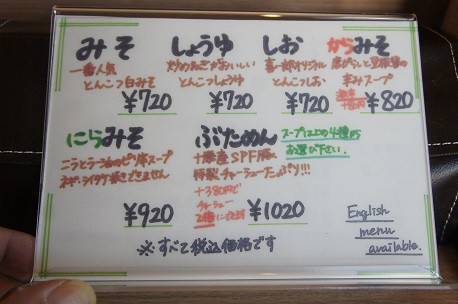 みそ
一番人気
とんこつ白みそ
¥720
しょうゆ
炒めねぎがおいしい
とんこつしょうゆ
¥720
しお
喜一郎オリジナル
とんこつしお
¥720
からみそ
唐がらしと豆板醤の
辛みスープ
¥820
にらみそ
ニラとラー油のピリ辛スープ
ネギ・シイタケ抜きできません
¥920
ぶためん
十勝産SPF豚
特製チャーシューたっぷり!!!
+380円で
チャーシュー
2倍にできます
¥1020
スープは上の4種から
お選び下さい。
※すべて税込価格です
English
menu
available.